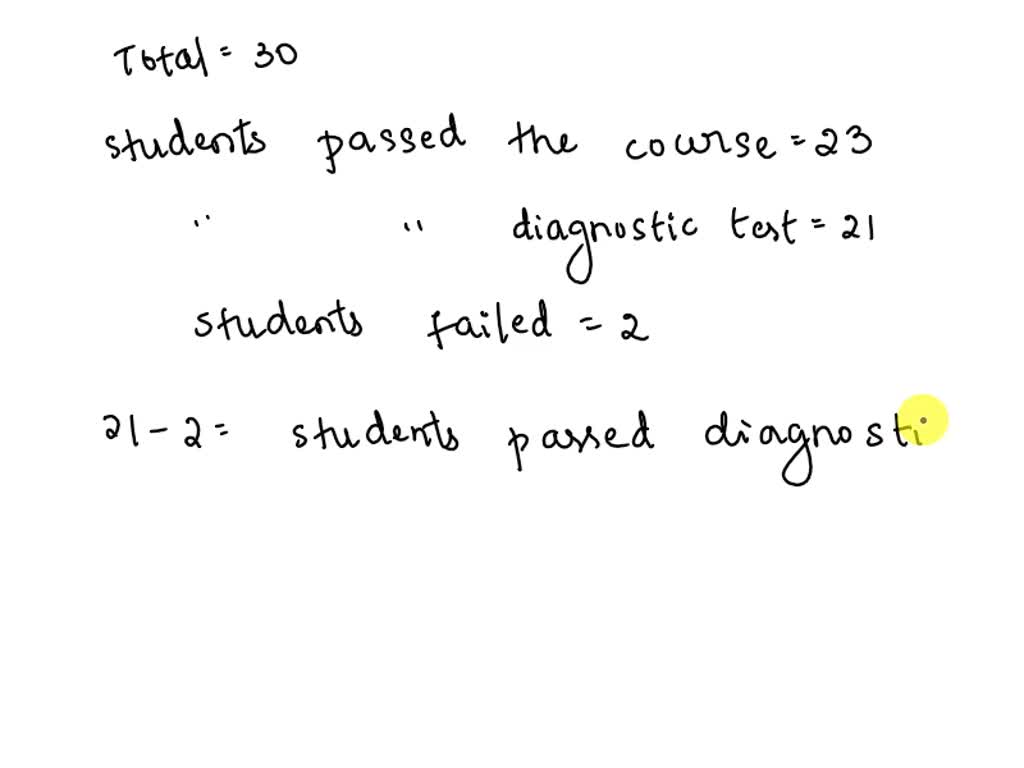 Total = 30
students passed the course = 23
" " diagnostic test = 21
students failed = 2
21 - 2 = students passed diagnosti